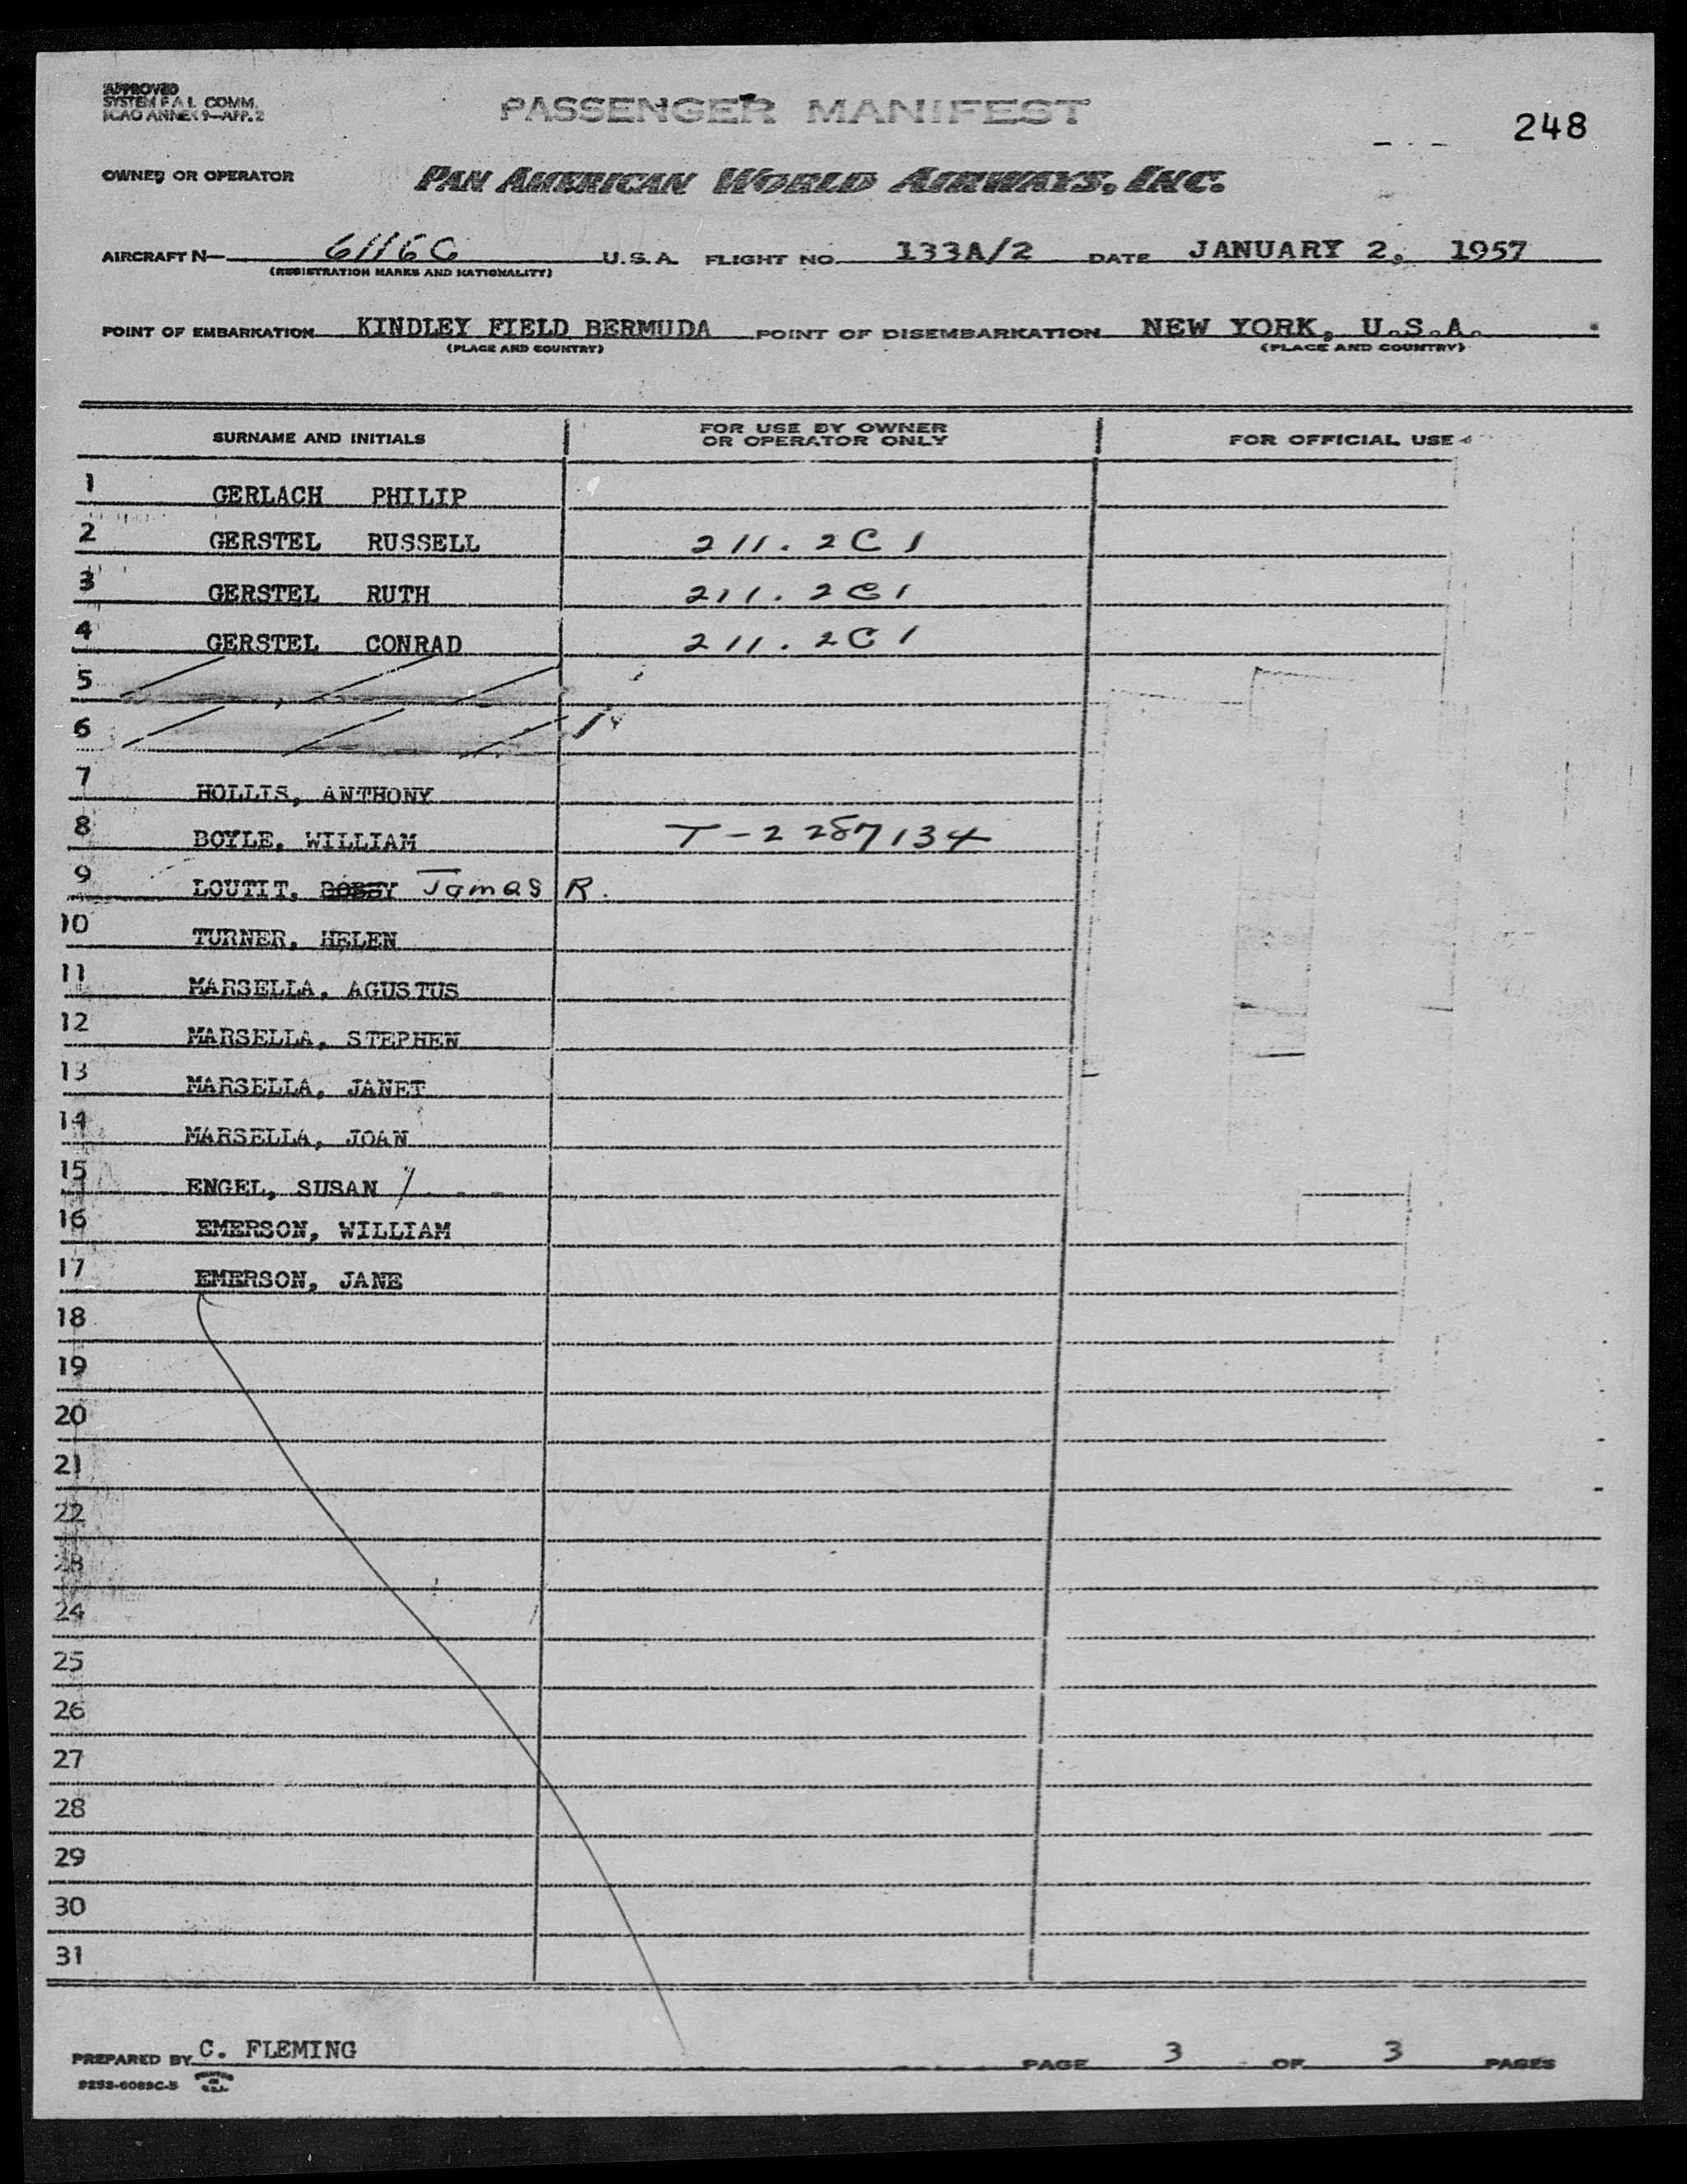 APPROVED
SYSTEM F.A.L. COMM.
ICAO ANNEX 9—APP. 2
PASSENGER MANIFEST
248
OWNER OR OPERATOR PAN AMERICAN WORLD AIRWAYS, INC.
AIRCRAFT N— 6116C U.S.A. FLIGHT NO. 133A/2 DATE JANUARY 2, 1957
(REGISTRATION MARKS AND NATIONALITY)
POINT OF EMBARKATION KINDLEY FIELD BERMUDA POINT OF DISEMBARKATION NEW YORK, U.S.A.
(PLACE AND COUNTRY) (PLACE AND COUNTRY)
SURNAME AND INITIALS FOR USE BY OWNER OR OPERATOR ONLY FOR OFFICIAL USE
1 GERLACH PHILIP
2 GERSTEL RUSSELL 211.2C1
3 GERSTEL RUTH 211.2C1
4 GERSTEL CONRAD 211.2C1
5
6
7 HOLLIS, ANTHONY
8 BOYLE, WILLIAM T-2287134
9 LOUTIT, BOBBY James R.
10 TURNER, HELEN
11 MARSELLA, AGUSTUS
12 MARSELLA, STEPHEN
13 MARSELLA, JANET
14 MARSELLA, JOAN
15 ENGEL, SUSAN /
16 EMERSON, WILLIAM
17 EMERSON, JANE
18
19
20
21
22
23
24
25
26
27
28
29
30
31
PREPARED BY C. FLEMING PAGE 3 OF 3 PAGES
9253-6089C-5 PRINTED IN U.S.A.